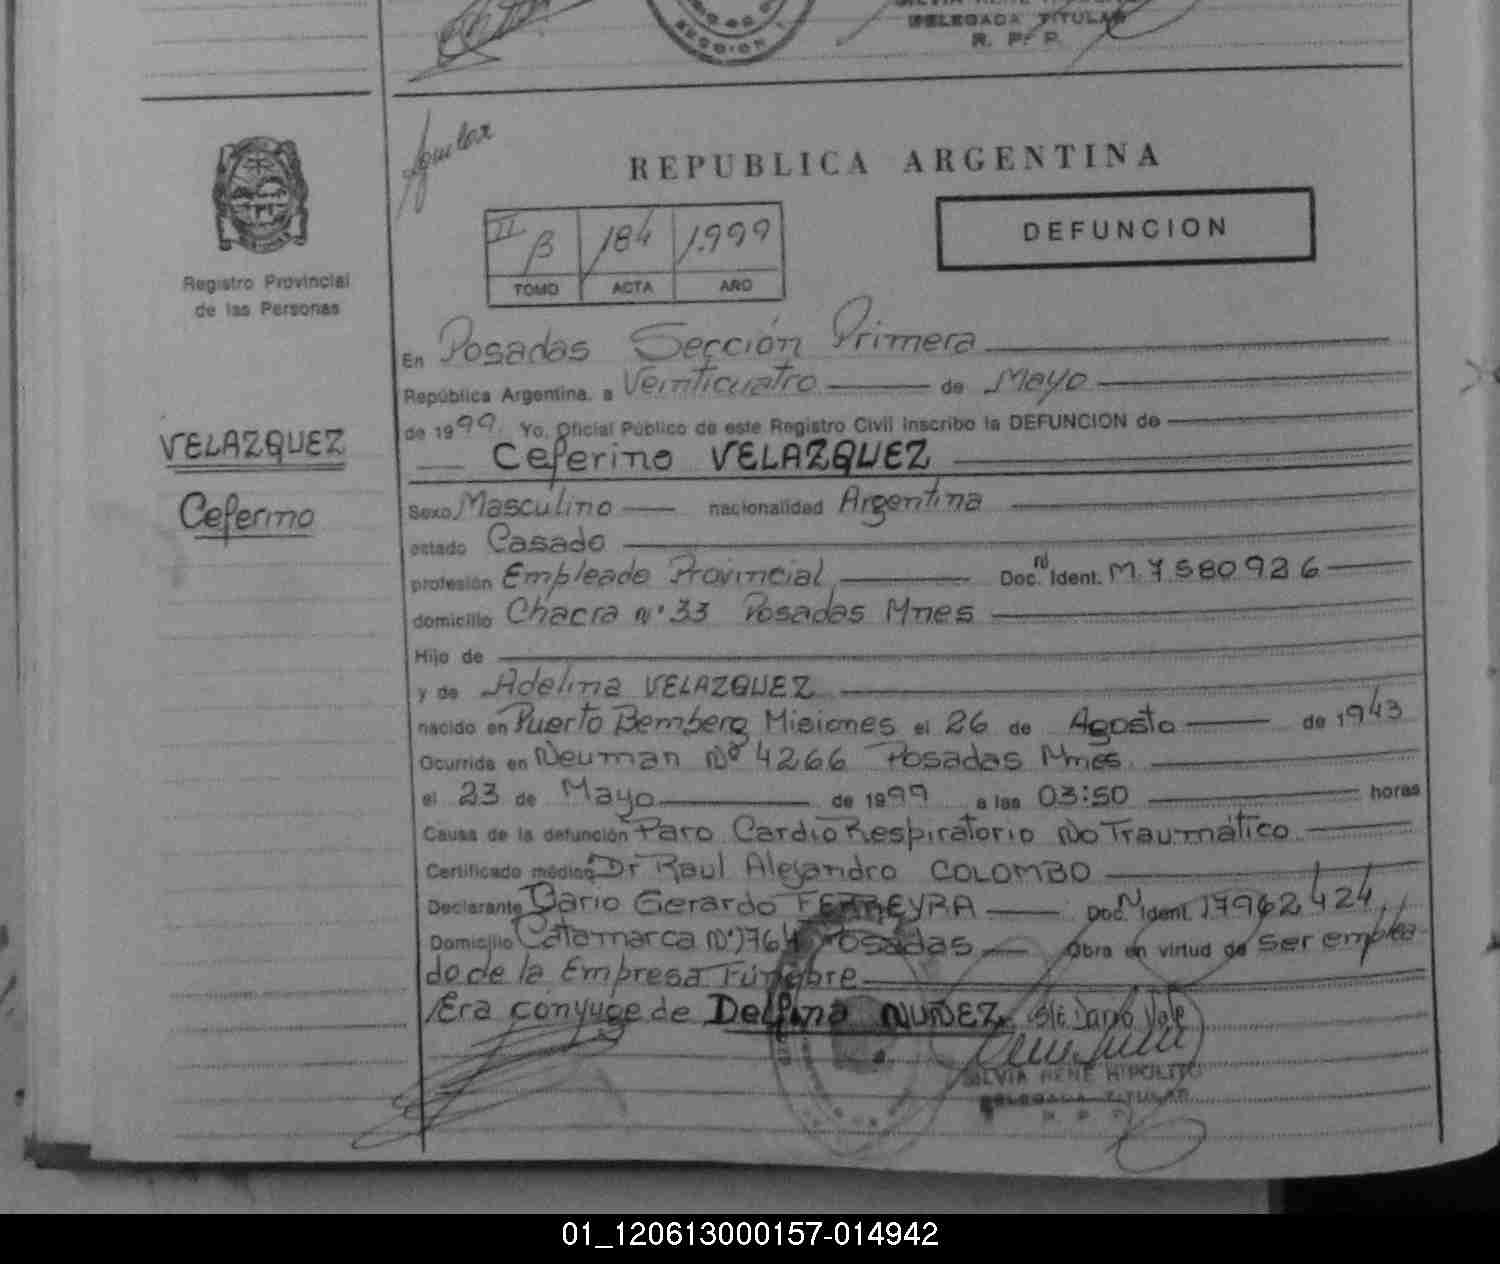 DELEGADA TITULAR
R. P. P.
Aguilar
REPUBLICA ARGENTINA
DEFUNCION
II B 184 1.999
TOMO ACTA AÑO
Registro Provincial
de las Personas
VELAZQUEZ
Ceferino
En Posadas Sección Primera
República Argentina, a Veinticuatro de Mayo
de 1999 Yo, Oficial Público de este Registro Civil inscribo la DEFUNCION de
Ceferino VELAZQUEZ
Sexo Masculino nacionalidad Argentina
estado Casado
profesión Empleado Provincial Doc. Ident. M.7580926
domicilio Chacra Nº 33 Posadas Mnes
Hijo de
y de Adelina VELAZQUEZ
nacido en Puerto Bemberg Misiones el 26 de Agosto de 1943
Ocurrida en Neuman Nº 4266 Posadas Mnes.
el 23 de Mayo de 1999 a las 03:50 horas
Causa de la defunción Paro Cardio Respiratorio No Traumático
Certificado médico Dr Raul Alejandro COLOMBO
Declarante Dario Gerardo FERREYRA Doc. Ident. 17962424
Domicilio Catamarca Nº 1764 Posadas Obra en virtud de ser emplea-
do de la Empresa Fúnebre
/Era cónyuge de Delfina NUÑEZ
SILVIA RENE HIPOLITO
DELEGADA TITULAR
R. P. P.
01_120613000157-014942